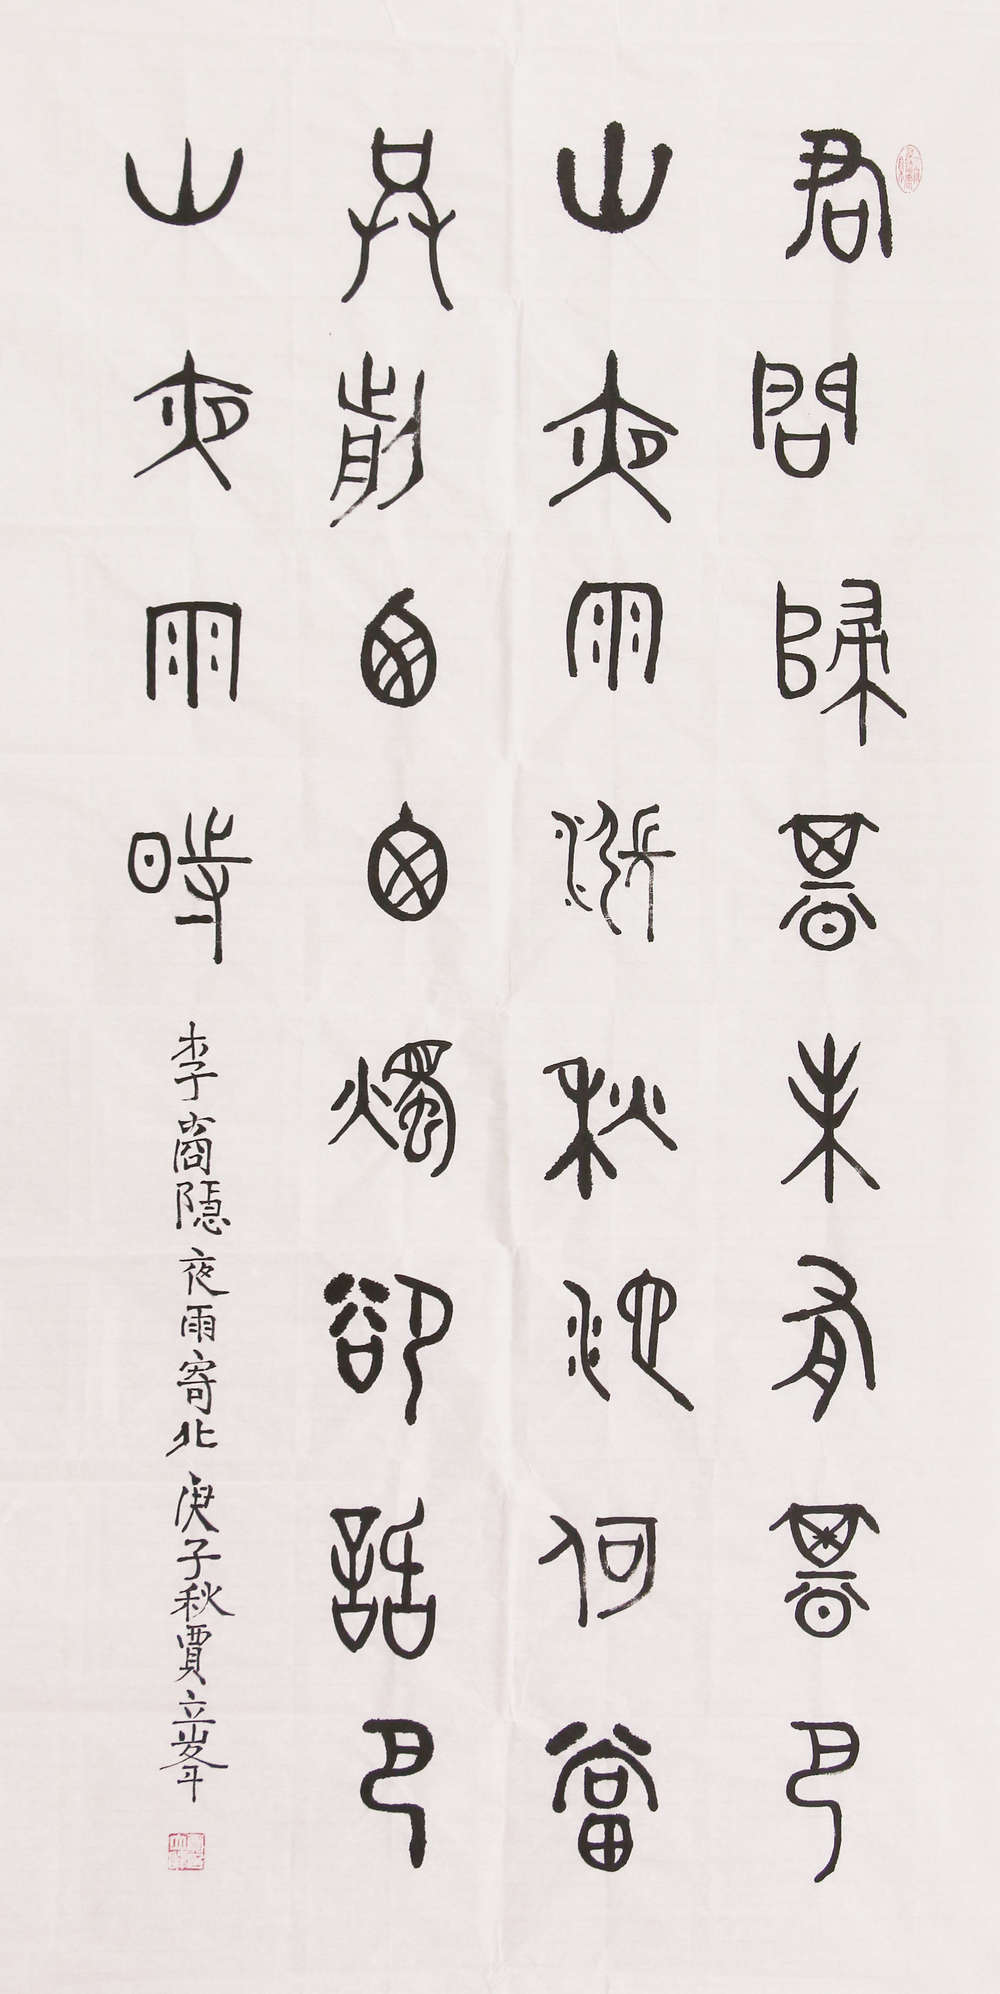 君問歸期未有期巴
山夜雨漲秋池何當
共剪西窗燭卻話巴
山夜雨時
李商隱夜雨寄北庚子秋賈立峯